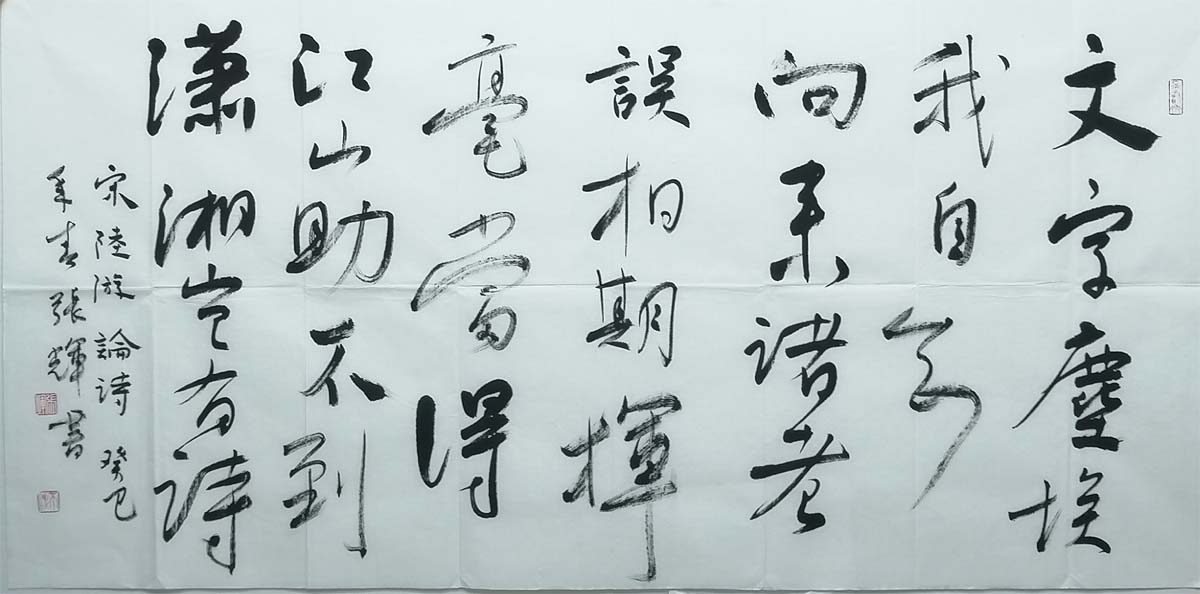 文字塵埃
我自知
向来諸老
誤相期揮
毫當得
江山助不到
潇湘豈有詩
宋陸游論詩 癸巳
年春張輝書